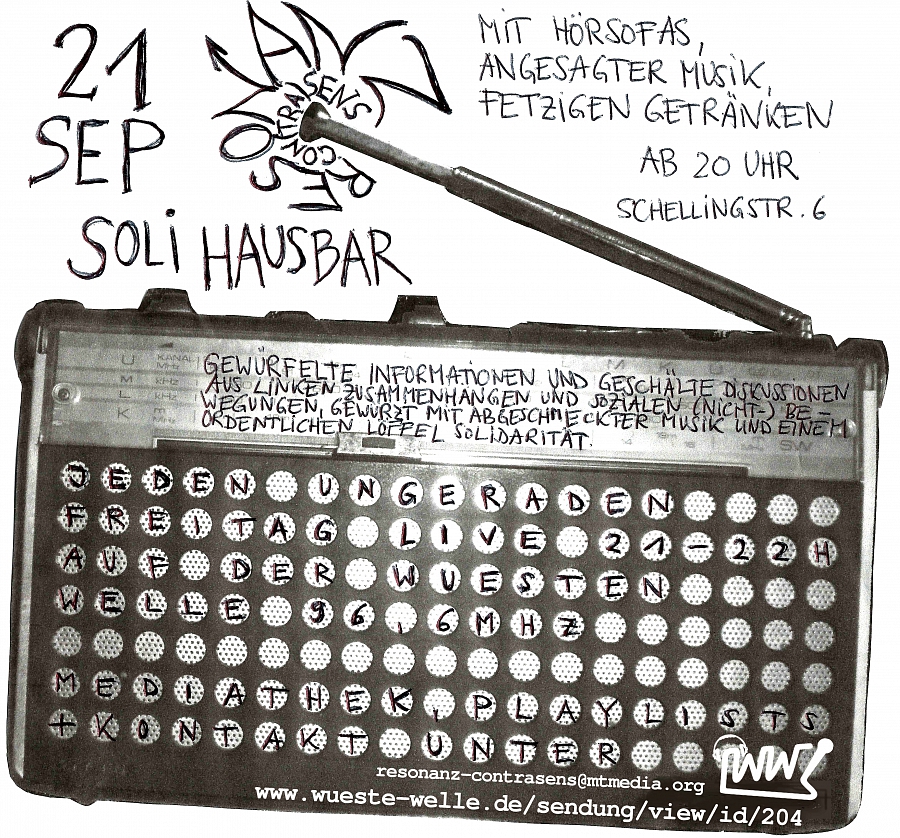 21
SEP
RESONANZ
CONTRASENS
SOLI HAUSBAR
MIT HÖRSOFAS,
ANGESAGTER MUSIK,
FETZIGEN GETRÄNKEN
AB 20 UHR
SCHELLINGSTR. 6
U KANAL MHz
M kHz
L kHz
K MHz
SW
GEWÜRFELTE INFORMATIONEN UND GESCHÄLTE DISKUSSIONEN
AUS LINKEN ZUSAMMENHANGEN UND SOZIALEN (NICHT-) BE-
WEGUNGEN, GEWÜRZT MIT ABGESCHMECKTER MUSIK UND EINEM
ORDENTLICHEN LÖFFEL SOLIDARITÄT.
JEDEN UNGERADEN
FREITAG LIVE 21-22H
AUF DER WUESTEN
WELLE 96.6MHZ
MEDIATHEK, PLAYLISTS
+ KONTAKT UNTER
WW
resonanz-contrasens@mtmedia.org
www.wueste-welle.de/sendung/view/id/204